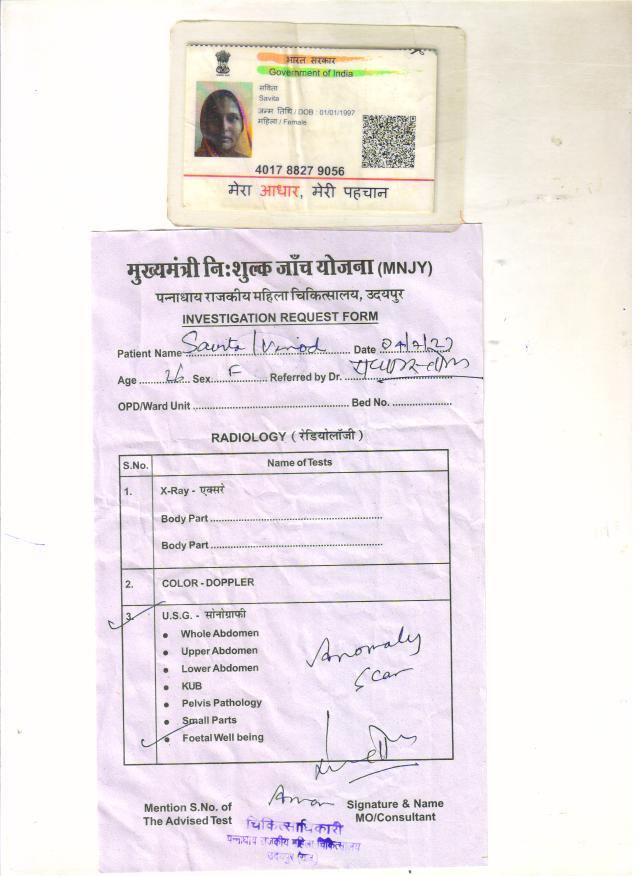 भारत सरकार
Government of India
सविता
Savita
जन्म तिथि / DOB : 01/01/1997
महिला / Female
4017 8827 9056
मेरा आधार, मेरी पहचान
मुख्यमंत्री निःशुल्क जाँच योजना (MNJY)
पन्नाधाय राजकीय महिला चिकित्सालय, उदयपुर
INVESTIGATION REQUEST FORM
Patient Name Savita / Vinod Date
Age 26 Sex F Referred by Dr.
OPD/Ward Unit Bed No.
RADIOLOGY ( रेडियोलॉजी )
S.No. Name of Tests
1. X-Ray - एक्सरे
Body Part
Body Part
2. COLOR - DOPPLER
3. U.S.G. - सोनोग्राफी
Whole Abdomen
Upper Abdomen
Lower Abdomen
KUB
Pelvis Pathology
Small Parts
Foetal Well being
Anomaly
Scan
Mention S.No. of
The Advised Test
Signature & Name
MO/Consultant
चिकित्साधिकारी
पन्नाधाय राजकीय महिला चिकित्सालय
उदयपुर (राज)